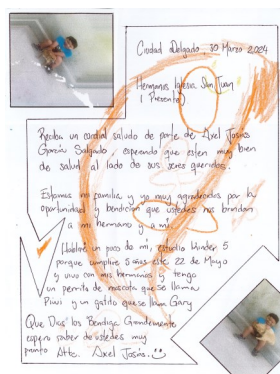 Ciudad Delgado, 30 Marzo 2024
Hermanos Iglesia San Juan
(Presente)
Reciban un cordial saludo de parte de Axel Josias
García Salgado, esperando que esten muy bien
de salud al lado de sus seres queridos.
Estamos mi familia y yo muy agradecidos por la
oportunidad y bendición que ustedes nos brindan
a mi hermano y a mi
Hablaré un poco de mi, estudio Kinder 5
porque cumplire 5 años este 22 de Mayo
y vivo con mis hermanos y tengo
un perrita de mascota que se llama
y un gatito que se llama Gary
Que Dios los Bendiga Grandemente
espero saber de ustedes muy
pronto Att: Axel Josias.